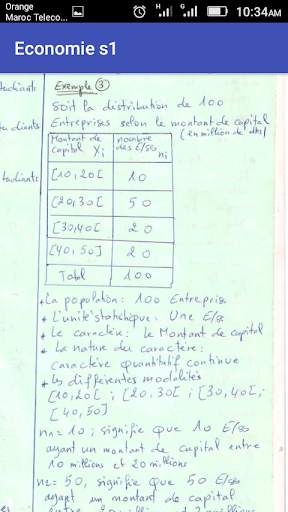 Orange
Maroc Teleco...
10:34AM
Economie s1
Exemple ③
Soit la distribution de 100
Entreprises selon le montant de capital
(en million de dhs)
Montant de capital Xi | nombre des E/ses ni
[10,20[ 10
[20,30[ 50
[30,40[ 20
[40,50] 20
Total 100
La population : 100 Entreprise
L'unité statistique : Une E/se
Le caractère : le Montant de capital
La nature du caractère :
caractère quantitatif continue
les différentes modalités
[10,20[ ; [20,30[ ; [30,40[ ;
[40,50]
n1 = 10 ; signifie que 10 E/ses
ayant un montant de capital entre
10 millions et 20 millions
n2 = 50, signifie que 50 E/ses
ayant un montant de capital